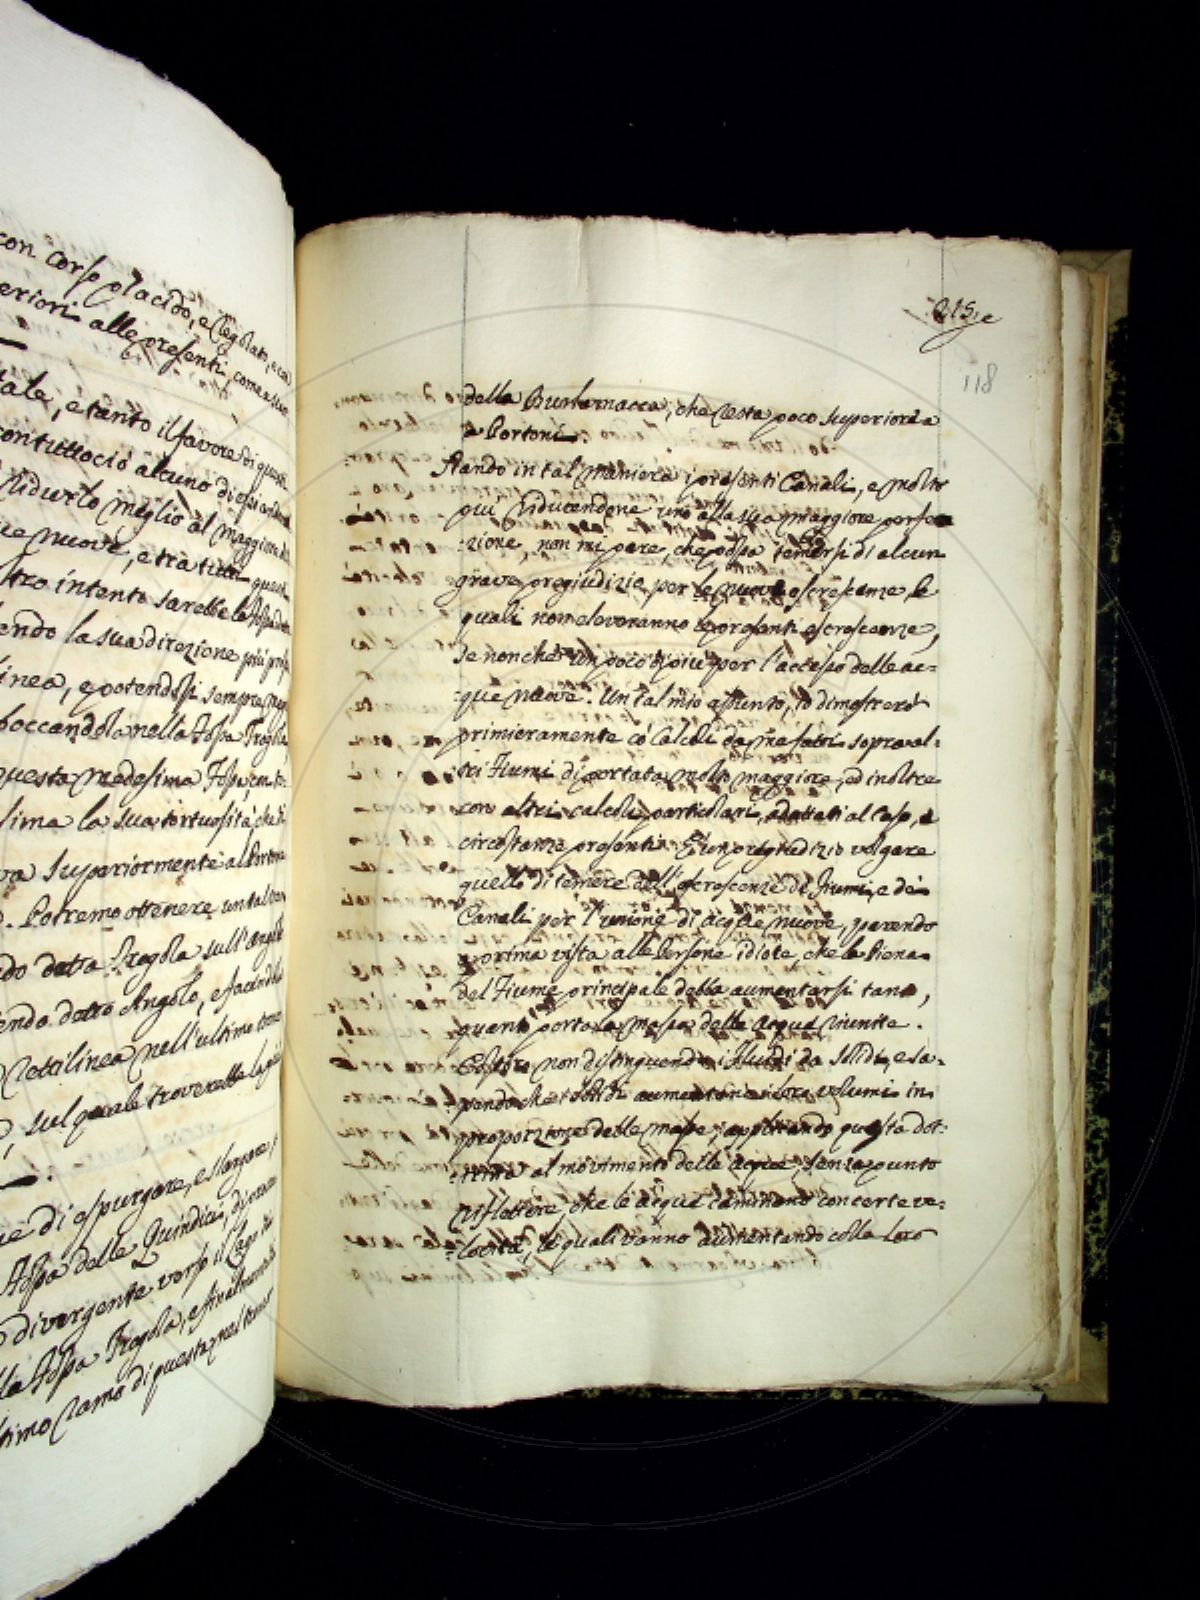 con corso placido, e regolato, e con
eriori alle presenti, come a suo
tale, e tanto il favore di quest
contuttociò alcuno di essi
ridurlo meglio al maggior
ue nuove, e tra tutti quest
tro intento sarebbe la Fossa
endo la sua direzione più pross
inea, e potendosi sempre più
boccandola nella Fossa Fregola
questa medesima Fossa, con
sima la sua tortuosità, che
va superiormente al Porton
o. Potremo ottenere un tal
do detta Fregola sull'angolo
endo detto Angolo, e facendola
rettilinea nell'ultimo tron
o, sul quale troverebbe la più
ue di espurgare, e slargare,
Fossa delle Quindici, di
o divergente verso il Lago
lla Fossa Fregola, e finalmente
ltimo ramo di questa nel
215. e
118
della Burlamacca, che resta poco superiore a
a Portoni.
Stando in tal maniera i presenti Canali, e molto
più riducendone uno alla sua maggiore perfe
zione, non mi pare, che possa temersi di alcun
grave pregiudizio per le nuove escrescenze, le
quali non eleveranno le presenti escrescenze,
se non che un poco di più per l'accesso delle ac-
que nuove. Un tal mio assunto, lo dimostrerò
primieramente co' Calcoli da me fatti sopra al-
tri Fiumi di portata molto maggiore, ed inoltre
con altri calcoli particolari, adattati al Caso, e
circostanze presenti. È un pregiudizio volgare
quello di temere dell'escrescenze de' Fiumi, e dei
Canali per l'unione di acque nuove, parendo
a prima vista alle Persone idiote, che la Piena
del Fiume principale debba aumentarsi tanto,
quanto porta la massa delle acque riunite.
Costoro non distinguendo i fluidi da Solidi, e sa-
pendo che i Solidi aumentano i loro volumi in
proporzione delle masse, applicando questa dot-
trina al movimento delle acque, senza punto
riflettere, che le acque camminano con certe ve-
locità, le quali vanno aumentando colla loro